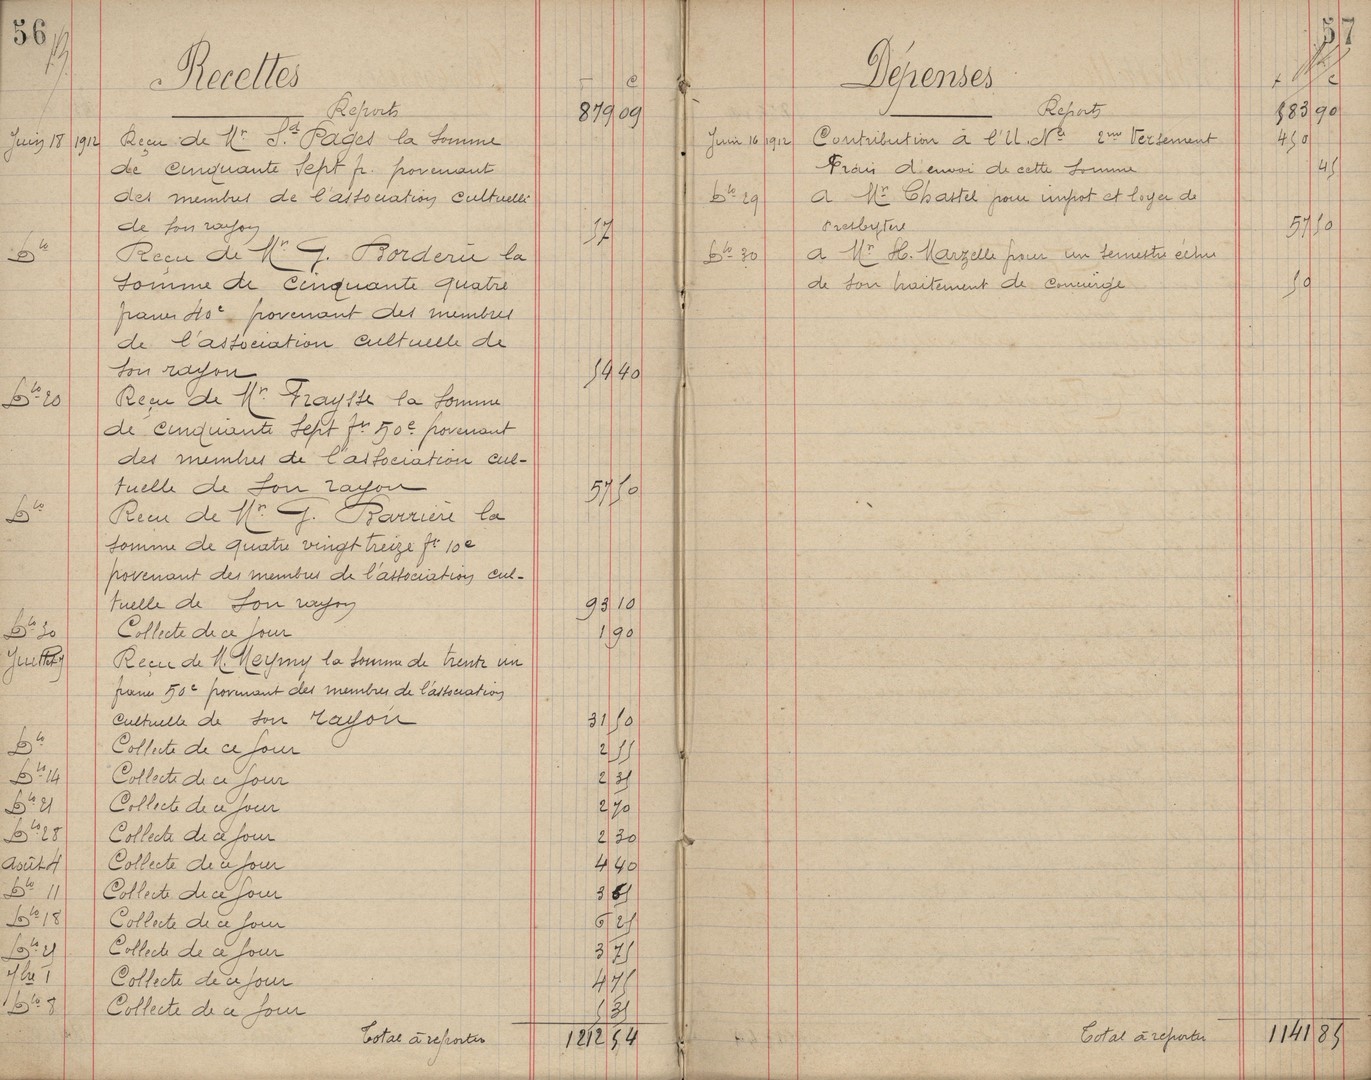 56
Recettes
F C
Reports 879 09
Juin 18 1912 Reçu de Mr Sd Pagès la somme
de cinquante sept fr. provenant
des membres de l'association cultuelle
de son rayon 57
Dto Reçu de Mr G. Borderie la
somme de cinquante quatre
francs 40c provenant des membres
de l'association cultuelle de
son rayon 54 40
Dto 20 Reçu de Mr Fraysse la somme
de cinquante sept fr 50c provenant
des membres de l'association cul-
tuelle de son rayon 57 50
Dto Reçu de Mr G. Barrière la
somme de quatre vingt treize fr 10c
provenant des membres de l'association cul-
tuelle de son rayon 93 10
Dto 30 Collecte de ce jour 1 90
Juillet 7 Reçu de M. Meymy la somme de trente un
francs 50c provenant des membres de l'association
cultuelle de son rayon 31 50
Dto Collecte de ce jour 2 55
Dto 14 Collecte de ce jour 2 35
Dto 21 Collecte de ce jour 2 70
Dto 28 Collecte de ce jour 2 30
Août 4 Collecte de ce jour 4 40
Dto 11 Collecte de ce jour 3 65
Dto 18 Collecte de ce jour 6 25
Dto 25 Collecte de ce jour 3 75
7bre 1 Collecte de ce jour 4 75
Dto 8 Collecte de ce jour 5 35
Total à reporter 1212 54
57
Dépenses
F C
Reports 583 90
Juin 16 1912 Contribution à l'U. Nle 2me Versement 450
Frais d'envoi de cette somme 45
Dto 29 a Mr Chastel pour impot et loyer de
presbytère 57 50
Dto 30 a Mr H. Marzelle pour un semestre échu
de son traitement de concierge 50
Total à reporter 1141 85